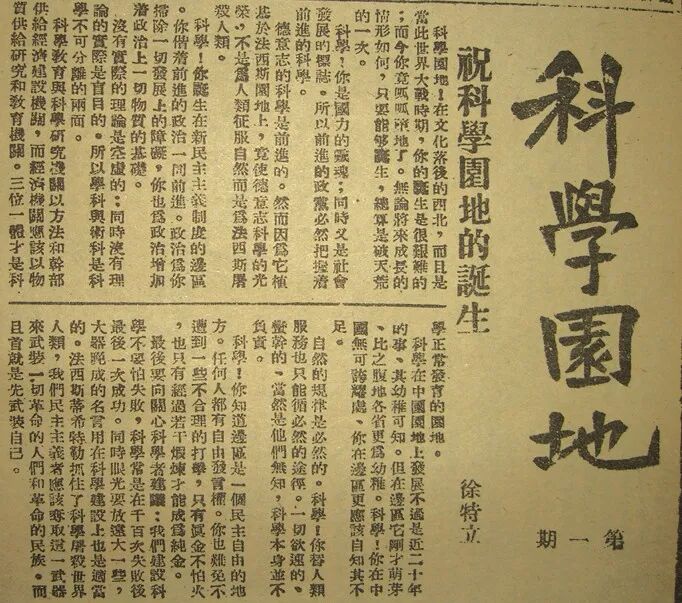 科學園地
第一期
祝科學園地的誕生
徐特立
科學園地!在文化落後的西北,而且是
當此世界大戰時期,你的誕生是很艱難的
;而今你竟呱呱墮地了。無論將來成長的
情形如何,只要能够誕生,總算是破天荒
的一次。
科學!你是國力的靈魂;同時又是社會
發展的標誌。所以前進的政黨必然把握着
前進的科學。
德意志的科學是前進的。然而因爲它植
基於法西斯園地上,竟使德意志科學的光
榮,不是爲人類征服自然而是爲法西斯屠
殺人類。
科學!你誕生在新民主主義制度的邊區
。你偕着前進的政治一同前進。政治爲你
掃除一切發展上的障礙,你也爲政治增加
着政治上一切物質的基礎。
沒有實際的理論是空虛的;同時沒有理
論的實際是盲目的。所以學科與術科是科
學不可分離的兩面。
科學教育與科學研究機關以方法和幹部
供給經濟建設機關,而經濟機關應該以物
質供給研究和教育機關。三位一體才是科
學正常發育的園地。
科學在中國園地上發展不過是近二十年
的事、其幼稚可知。但在邊區它剛才萌芽
、比之腹地各省更爲幼稚。科學!你在中
國無可誇耀處、你在邊區更應該自知其不
足。
自然的規律是必然的。科學!你替人類
服務也只能循必然的途徑。一切欲速的、
蠻幹的、當然是他們無知,科學本身並不
負責。
科學!你知道邊區是一個民主自由的地
方。任何人都有自由發言權。你也難免不
遭到一些不合理的打擊,只有眞金不怕火
,也只有經過若干煅煉才能成爲純金。
最後要向關心科學者建議:我們建設科
學不要怕失敗,科學常是在千百次失敗後
最後一次成功。同時眼光要放遠大一些,
大器晚成的名言用在科學建設上也是適當
的。法西斯蒂希特勒抓住了科學屠殺世界
人類,我們民主主義者應該奪取這一武器
來武裝一切革命的人們和革命的民族。而
且首就是先武裝自己。